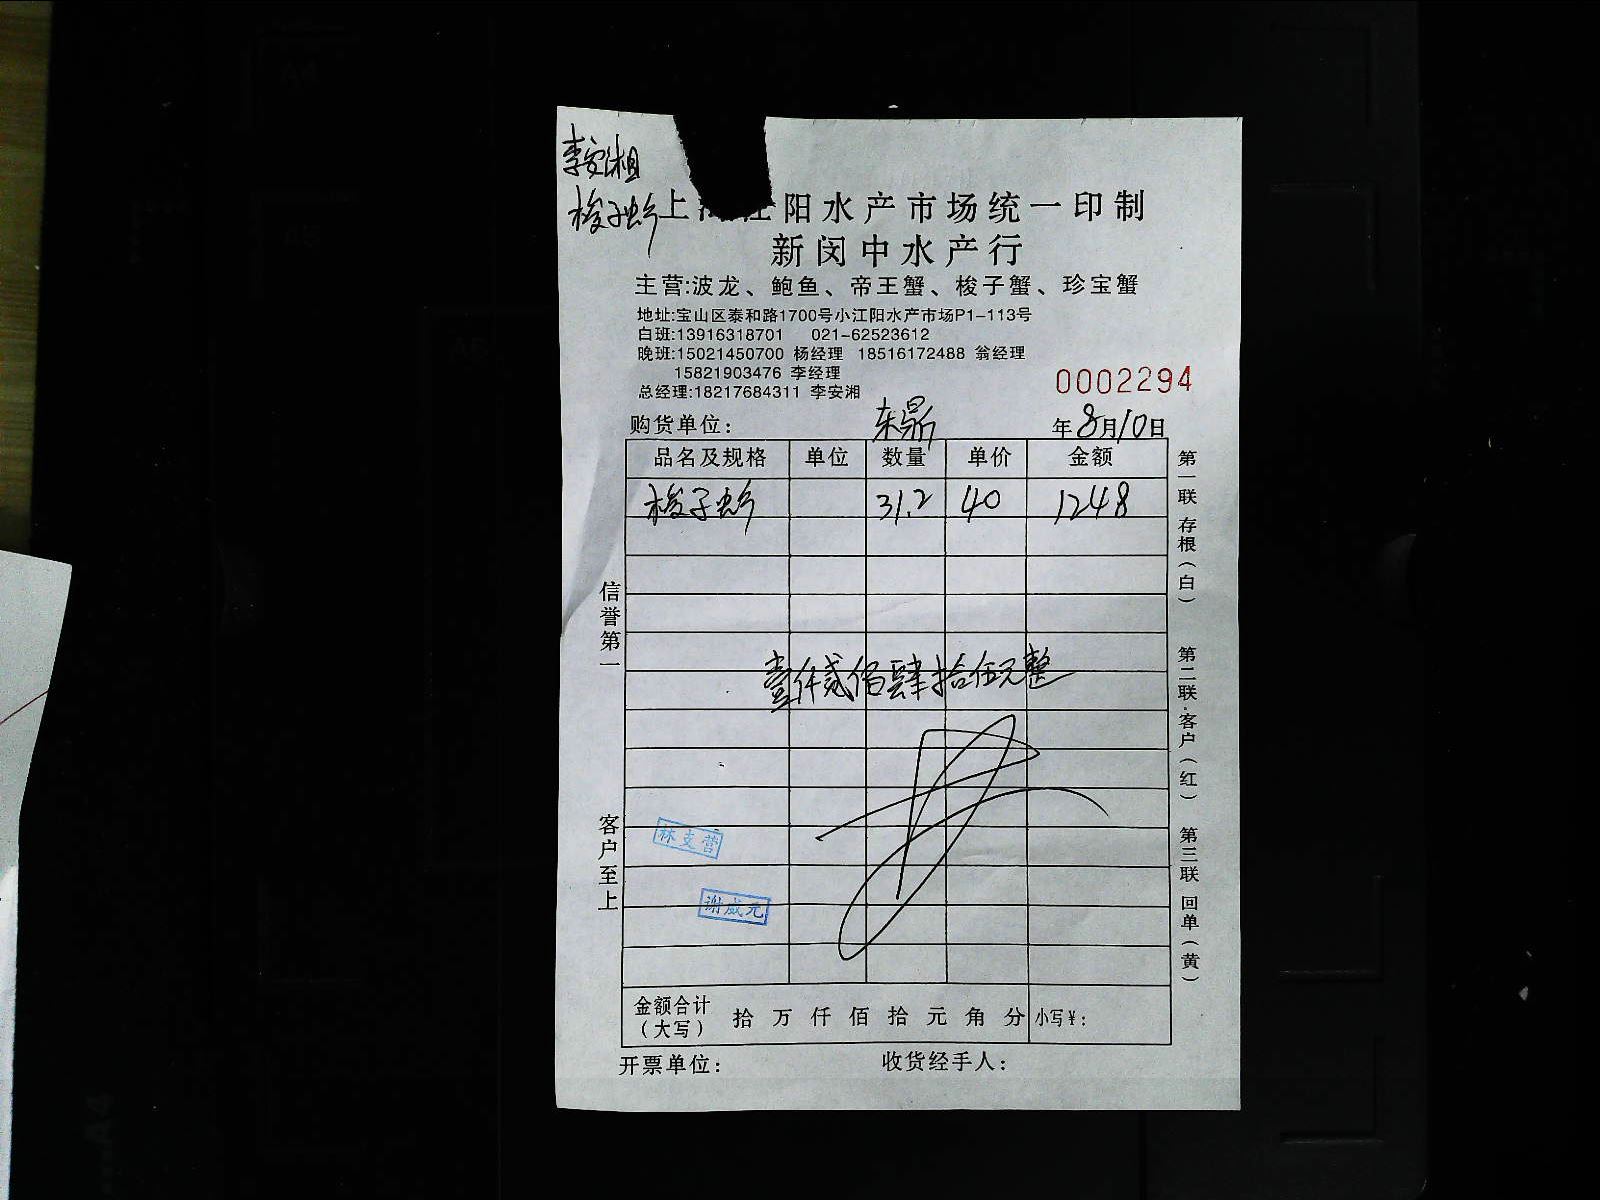 李安湘
梭子蚄
上海江阳水产市场统一印制
新闵中水产行
主营:波龙、鲍鱼、帝王蟹、梭子蟹、珍宝蟹
地址:宝山区泰和路1700号小江阳水产市场P1-113号
白班:13916318701 021-62523612
晚班:15021450700 杨经理 18516172488 翁经理
15821903476 李经理
总经理:18217684311 李安湘
0002294
购货单位: 东鼎 年8月10日
品名及规格 单位 数量 单价 金额
梭子蚄 31.2 40 1248
壹仟贰佰肆拾伍元整
林支营
谢威元
金额合计(大写) 拾 万 仟 佰 拾 元 角 分 小写¥:
开票单位: 收货经手人:
信誉第一
客户至上
第一联 存根(白)
第二联·客户(红)
第三联 回单(黄)